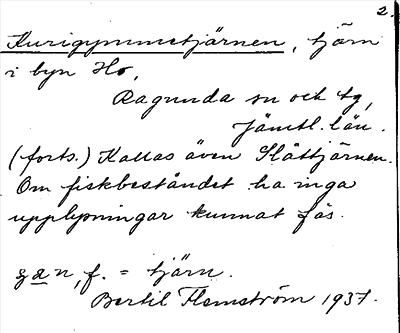 2.
Kurigummetjärnen, tjärn
i byn Ho,
Ragunda sn och tg,
Jämtl. län.
(forts.) Kallas även Slåttjärnen.
Om fiskbeståndet ha inga
upplysningar kunnat fås.
tjärn.
Bertil Flemström 1937.